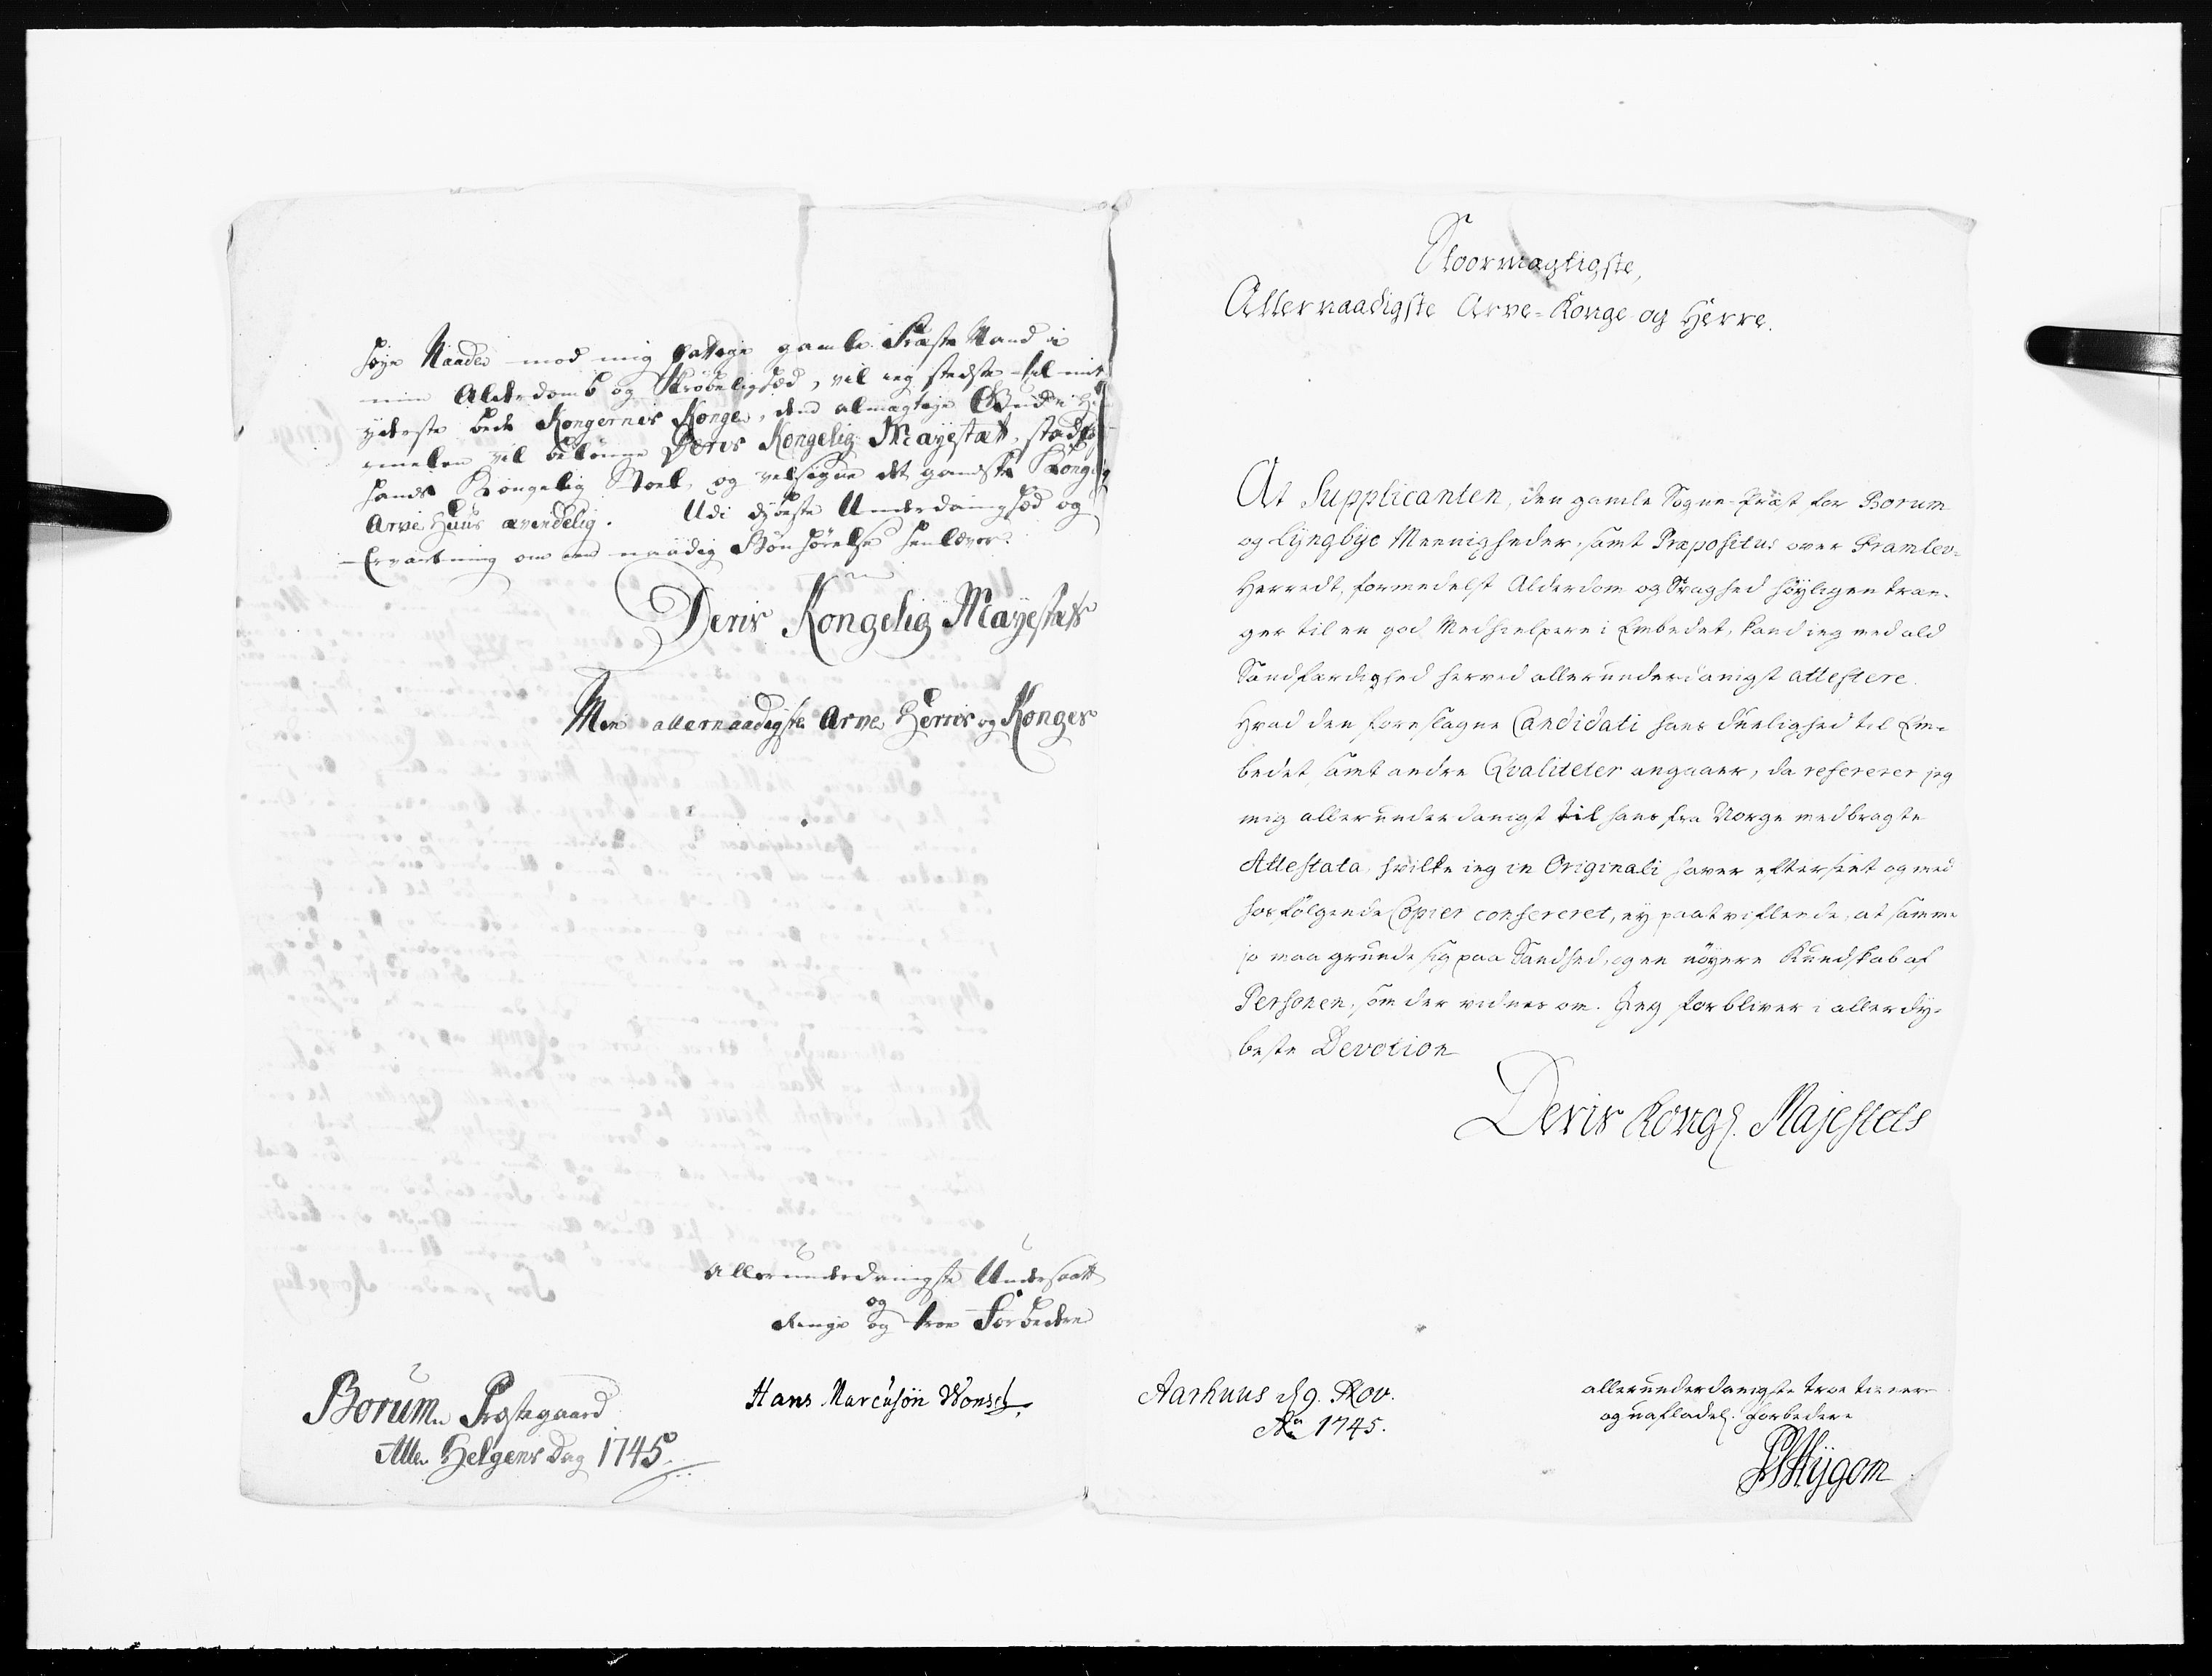 høye Naade mod mig fattige gamle Præste Mand i
min Alderdomb og Skrøbelighed, vil ieg stedse til mit
yderste bede Kongernes Konge, dend almægtige Gud i Him
melen vil belønne Deres Kongelig Mayestæt, stadfæ
hands Kongelig Stoel, og velsigne det gandske Kongelig
Arve Huus ævindelig. Udi dybeste Underdanighed og
Ervartning om een naadig Bønhørelse henlever
Deris Kongelig Mayestets
Min allernaadigste Arve Herris og Konges
Allerunderdanigste Undersaatt
og
ringe og troe Forbedere
Borum Præstegaard
Alle Helgens Dag 1745
Hans Marcusøn Wonsyl.
Stoormægtigste,
Allernaadigste Arve-Konge og Herre.
At Supplicanten, den gamle Sogne-Præst for Borum
og Lyngbye Meenigheder, samt Præpositus over Framlev-
Herredt, formedelst Alderdom og Svaghed høyligen træn-
ger til en god Medhielpere i Embedet, kand ieg med all
Sandfærdighed herved allerunderdanigst attestere.
Hvad den foreslagne Candidati hans duelighed til Em-
bedet, samt andre Qvaliteter angaaer, da refererer jeg
mig allerunderdanigst til hans fra Norge medbragte
Attestata, hvilke ieg in Originali haver efterseet og med
hosfølgende Copier confereret, ey paatviflende, at samme
jo maa grunde sig paa Sandhed, og en nøyere Kundskab af
Personen, som der vidnes om. Jeg forbliver i allerdy-
beste Devotion
Deris Kongl. Majestets
Aarhuus d. 9. Nov.
Ao 1745.
allerunderdanigste troe tienere
og uafladel. forbedere
PHygom